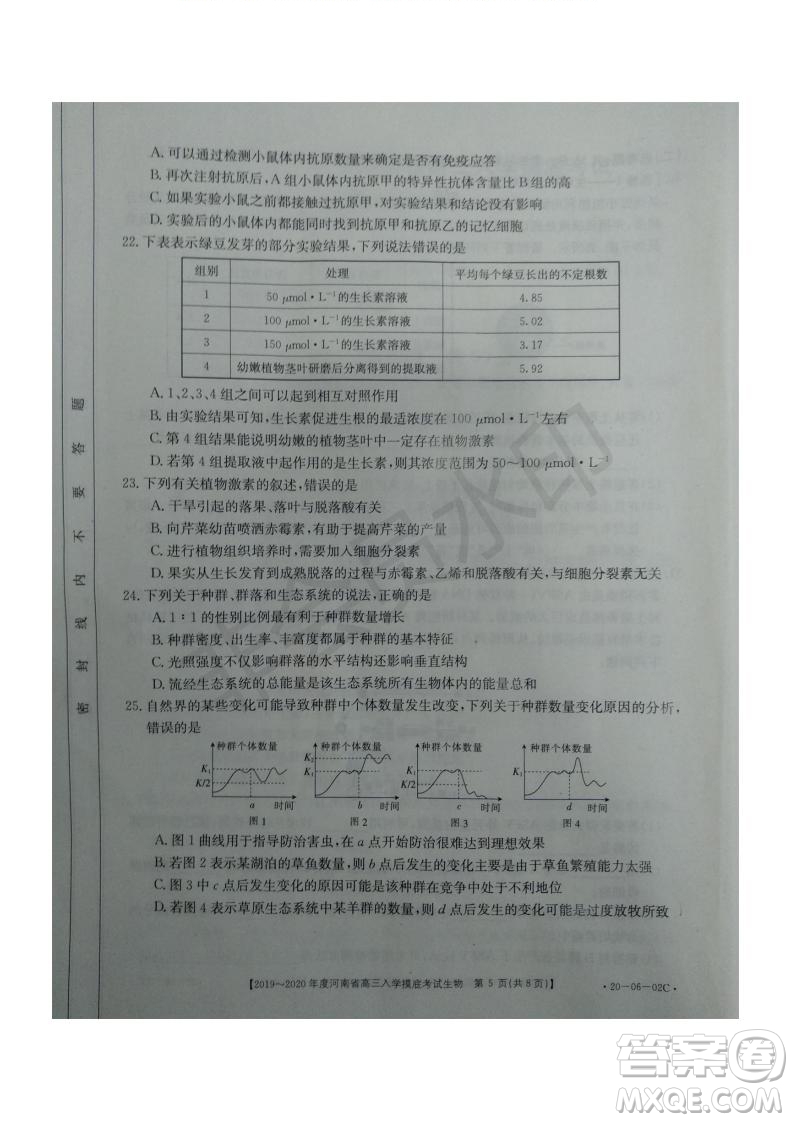 A. 可以通过检测小鼠体内抗原数量来确定是否有免疫应答
B. 再次注射抗原后，A 组小鼠体内抗原甲的特异性抗体含量比 B 组的高
C. 如果实验小鼠之前都接触过抗原甲，对实验结果和结论没有影响
D. 实验后的小鼠体内都能同时找到抗原甲和抗原乙的记忆细胞
22. 下表表示绿豆发芽的部分实验结果，下列说法错误的是
组别 处理 平均每个绿豆长出的不定根数
1 50 μmol·L⁻¹的生长素溶液 4.85
2 100 μmol·L⁻¹的生长素溶液 5.02
3 150 μmol·L⁻¹的生长素溶液 3.17
4 幼嫩植物茎叶研磨后分离得到的提取液 5.92
A. 1、2、3、4 组之间可以起到相互对照作用
B. 由实验结果可知，生长素促进生根的最适浓度在 100 μmol·L⁻¹左右
C. 第 4 组结果能说明幼嫩的植物茎叶中一定存在植物激素
D. 若第 4 组提取液中起作用的是生长素，则其浓度范围为 50～100 μmol·L⁻¹
23. 下列有关植物激素的叙述，错误的是
A. 干旱引起的落果、落叶与脱落酸有关
B. 向芹菜幼苗喷洒赤霉素，有助于提高芹菜的产量
C. 进行植物组织培养时，需要加入细胞分裂素
D. 果实从生长发育到成熟脱落的过程与赤霉素、乙烯和脱落酸有关，与细胞分裂素无关
24. 下列关于种群、群落和生态系统的说法，正确的是
A. 1∶1 的性别比例最有利于种群数量增长
B. 种群密度、出生率、丰富度都属于种群的基本特征
C. 光照强度不仅影响群落的水平结构还影响垂直结构
D. 流经生态系统的总能量是该生态系统所有生物体内的能量总和
25. 自然界的某些变化可能导致种群中个体数量发生改变，下列关于种群数量变化原因的分析，
错误的是
种群个体数量 K₁ K/2 a 时间 图 1
种群个体数量 K₂ K₁ b 时间 图 2
种群个体数量 K₁ K/2 c 时间 图 3
种群个体数量 K₁ K/2 d 时间 图 4
A. 图 1 曲线用于指导防治害虫，在 a 点开始防治很难达到理想效果
B. 若图 2 表示某湖泊的草鱼数量，则 b 点后发生的变化主要是由于草鱼繁殖能力太强
C. 图 3 中 c 点后发生变化的原因可能是该种群在竞争中处于不利地位
D. 若图 4 表示草原生态系统中某羊群的数量，则 d 点后发生的变化可能是过度放牧所致
【2019～2020 年度河南省高三入学摸底考试生物 第 5 页(共 8 页)】
·20-06-02C·
密封线内不要答题
水印
答案圈
MXQE.COM